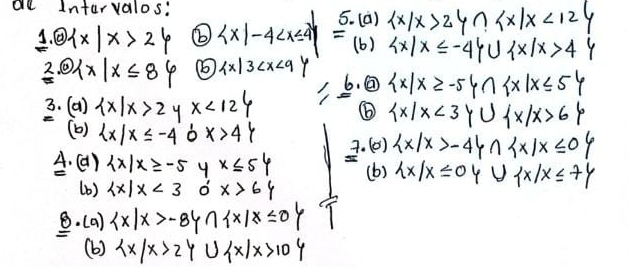 de Intervalos:
1.(a) {x|x>2} (b) {x|-4<x≤4}
2.(a) {x|x≤8} (b) {x|3<x<9}
3.(a) {x|x>2 y x<12}
(b) {x/x≤-4 ó x>4}
4.(a) {x/x≥-5 y x≤5}
(b) {x/x<3 ó x>6}
8.(a) {x/x>-8} ∩ {x/x≤0}
(b) {x/x>2} U {x/x>10}
5.(a) {x/x>2} ∩ {x/x<12}
(b) {x/x≤-4} U {x/x>4}
6.(a) {x/x≥-5} ∩ {x/x≤5}
(b) {x/x<3} U {x/x>6}
7.(a) {x/x>-4} ∩ {x/x≤0}
(b) {x/x≤0} U {x/x≤7}